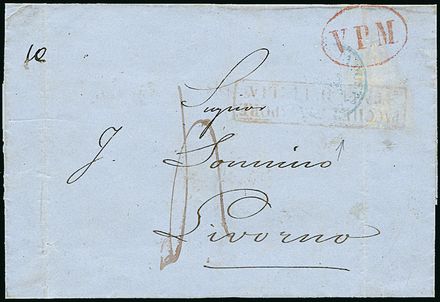 V.P.M
10
Signor
J. Sonnino
Livorno